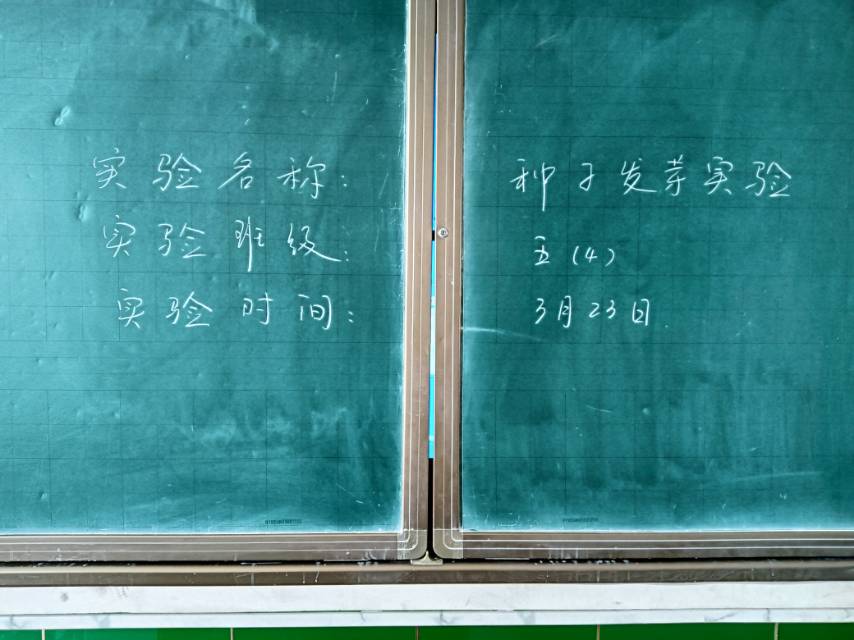 实验名称: 种子发芽实验
实验班级: 五(4)
实验时间: 3月23日